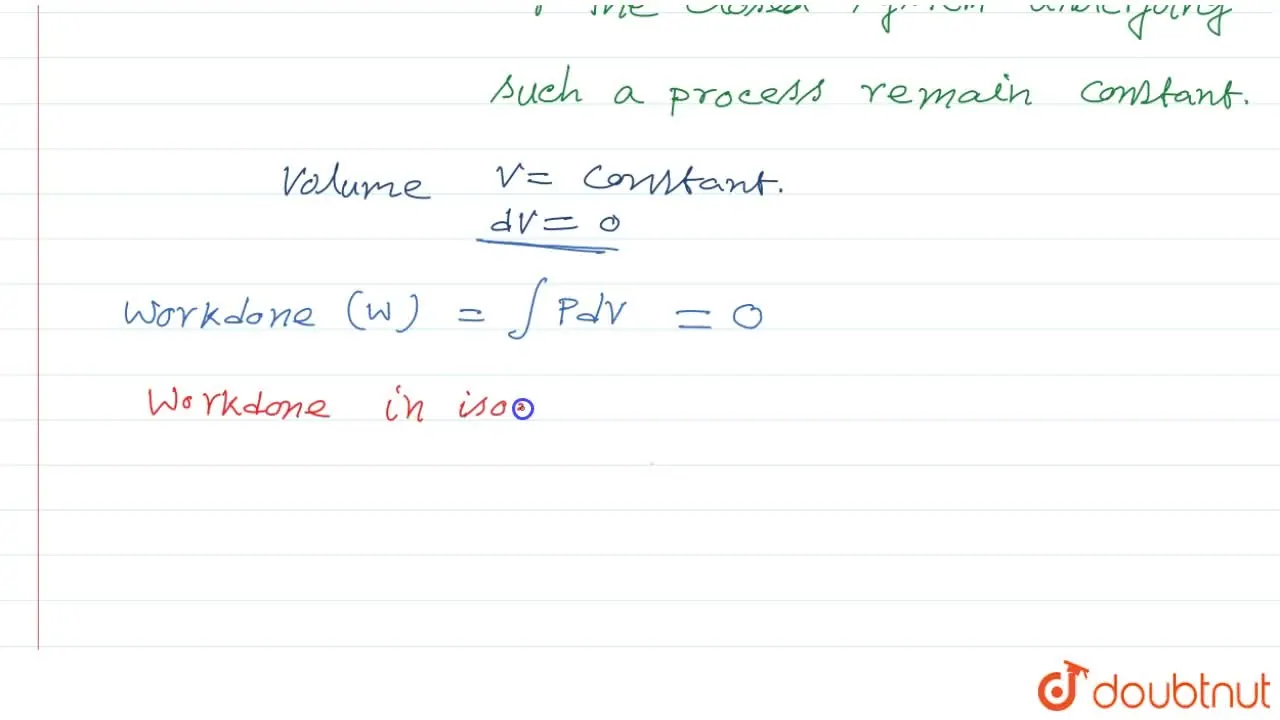 the closed system undergoing
such a process remain constant.
Volume V = constant.
dV = 0
Workdone (W) = ∫ PdV = 0
Workdone in iso
doubtnut